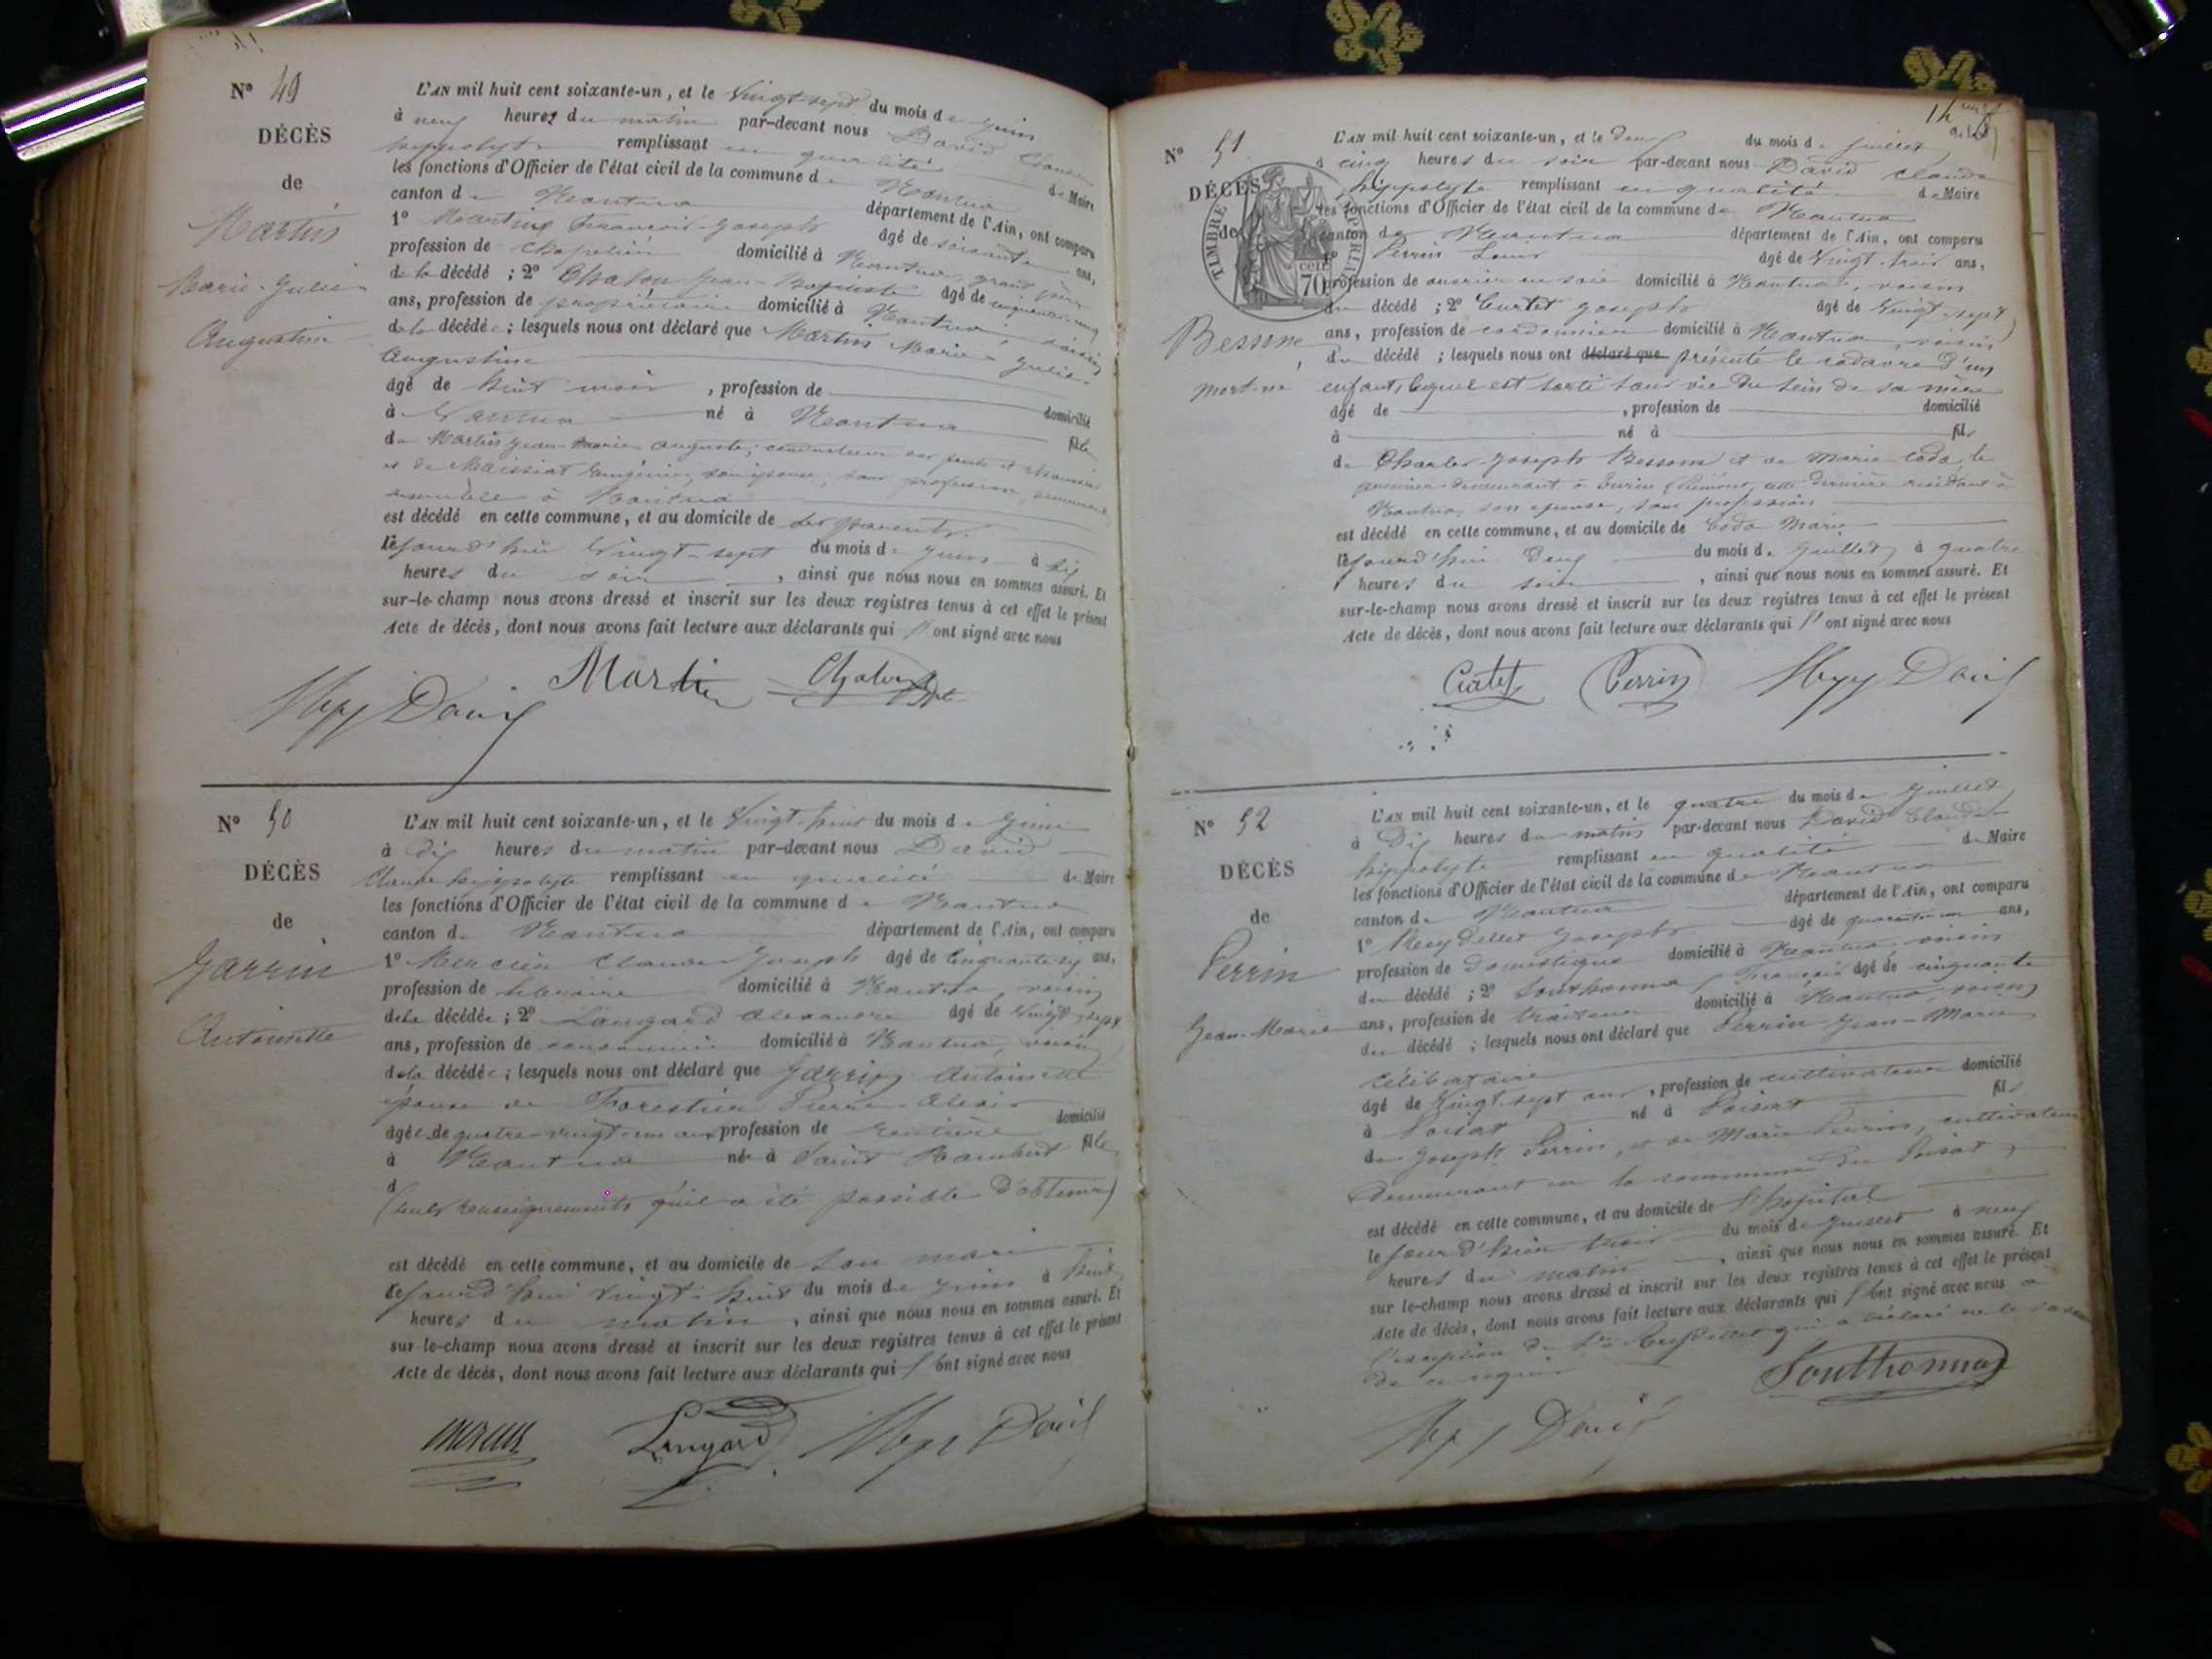 N° 49
DÉCÈS
de
Martin
Marie-Julie
Augustine
L'AN mil huit cent soixante-un, et le vingt-sept du mois de juin
à neuf heures du matin par-devant nous David Claude
hippolyte remplissant en qualité de Maire
les fonctions d'Officier de l'état civil de la commune de Nantua
canton de Nantua département de l'Ain, ont comparu
1° Martin François-Joseph âgé de soixante ans,
profession de chapelier domicilié à Nantua, grand père
de la décédé ; 2° Chalon Jean-Baptiste âgé de cinquante-cinq
ans, profession de propriétaire domicilié à Nantua voisin
de la décédée ; lesquels nous ont déclaré que Martin Marie-Julie-
Augustine
âgé de huit mois , profession de domicilié
à Nantua né à Nantua fille
de Martin Jean-Marie Auguste, conducteur des ponts et chaussées
et de Maissiat Eugénie, son épouse, sans profession, demeurant
ensemble à Nantua
est décédé en cette commune, et au domicile de ses parents
le jourd'hui vingt-sept du mois de juin à six
heures du soir , ainsi que nous nous en sommes assuré. Et
sur-le-champ nous avons dressé et inscrit sur les deux registres tenus à cet effet le présent
Acte de décès, dont nous avons fait lecture aux déclarants qui l'ont signé avec nous
Martin
Hyp David
N° 50
DÉCÈS
de
Garrin
Antoinette
L'AN mil huit cent soixante-un, et le vingt-huit du mois de juin
à dix heures du matin par-devant nous David
Claude hippolyte remplissant en qualité de Maire
les fonctions d'Officier de l'état civil de la commune de Nantua
canton de Nantua département de l'Ain, ont comparu
1° Mercier Claude Joseph âgé de cinquante six ans,
profession de libraire domicilié à Nantua, voisin
de la décédée ; 2° Langard Alexandre âgé de vingt-sept
ans, profession de domicilié à Nantua, voisin
de la décédée ; lesquels nous ont déclaré que Garrin Antoinette
épouse de Forestier Pierre-Alexis
âgée de quatre-vingt-un ans profession de rentière domicilié
à Nantua née à Saint Rambert fille
d
(seuls renseignements qu'il a été possible d'obtenir)
est décédé en cette commune, et au domicile de son mari
le jourd'hui vingt-huit du mois de juin à huit
heures du matin , ainsi que nous nous en sommes assuré. Et
sur-le-champ nous avons dressé et inscrit sur les deux registres tenus à cet effet le présent
Acte de décès, dont nous avons fait lecture aux déclarants qui l'ont signé avec nous
Mercier Langard Hyp David
14
N° 51
DÉCÈS
de
TIMBRE IMPÉRIAL
70 cent
Bessone
mort-né
L'AN mil huit cent soixante-un, et le deux du mois de juillet
à cinq heures du soir par-devant nous David Claude
hippolyte remplissant en qualité de Maire
les fonctions d'Officier de l'état civil de la commune de Nantua
canton de Nantua département de l'Ain, ont comparu
1° Perrin Louis âgé de vingt-trois ans,
profession de ouvrier en soie domicilié à Nantua, voisin
du décédé ; 2° Curtet Joseph âgé de vingt-sept
ans, profession de cordonnier domicilié à Nantua, voisin
du décédé ; lesquels nous ont déclaré que présenté le cadavre d'un
enfant, lequel est sorti sans vie du sein de sa mère
âgé de , profession de domicilié
à né à fils
de Charles-Joseph Bessone et de Marie Coda, le
premier demeurant à Turin (Piémont, cette dernière résidant à
Nantua, son épouse, sans profession
est décédé en cette commune, et au domicile de Coda Marie
le jourd'hui deux du mois de juillet à quatre
heures du soir , ainsi que nous nous en sommes assuré. Et
sur-le-champ nous avons dressé et inscrit sur les deux registres tenus à cet effet le présent
Acte de décès, dont nous avons fait lecture aux déclarants qui l'ont signé avec nous
Curtet Perrin Hyp David
N° 52
DÉCÈS
de
Perrin
Jean-Marie
L'AN mil huit cent soixante-un, et le quatre du mois de juillet
à dix heures du matin par-devant nous David Claude
hippolyte remplissant en qualité de Maire
les fonctions d'Officier de l'état civil de la commune de Nantua
canton de Nantua département de l'Ain, ont comparu
1° Joseph âgé de quarante-un ans,
profession de domestique domicilié à Nantua voisin
du décédé ; 2° Southonnax François âgé de cinquante
ans, profession de traiteur domicilié à Nantua, voisin
du décédé ; lesquels nous ont déclaré que Perrin Jean-Marie
célibataire
âgé de vingt-sept ans, profession de cultivateur domicilié
à Poisat né à Poisat fils
de Joseph Perrin, et de Marie Perrin, cultivateurs
demeurant en la commune du Poisat
est décédé en cette commune, et au domicile de l'hopital
le jour d'hier trois du mois de juillet à neuf
heures du matin , ainsi que nous nous en sommes assuré. Et
sur le-champ nous avons dressé et inscrit sur les deux registres tenus à cet effet le présent
Acte de décès, dont nous avons fait lecture aux déclarants qui l'ont signé avec nous à
l'exception du qui a déclaré ne le savoir
de ce requis
Southonnax
Hyp David